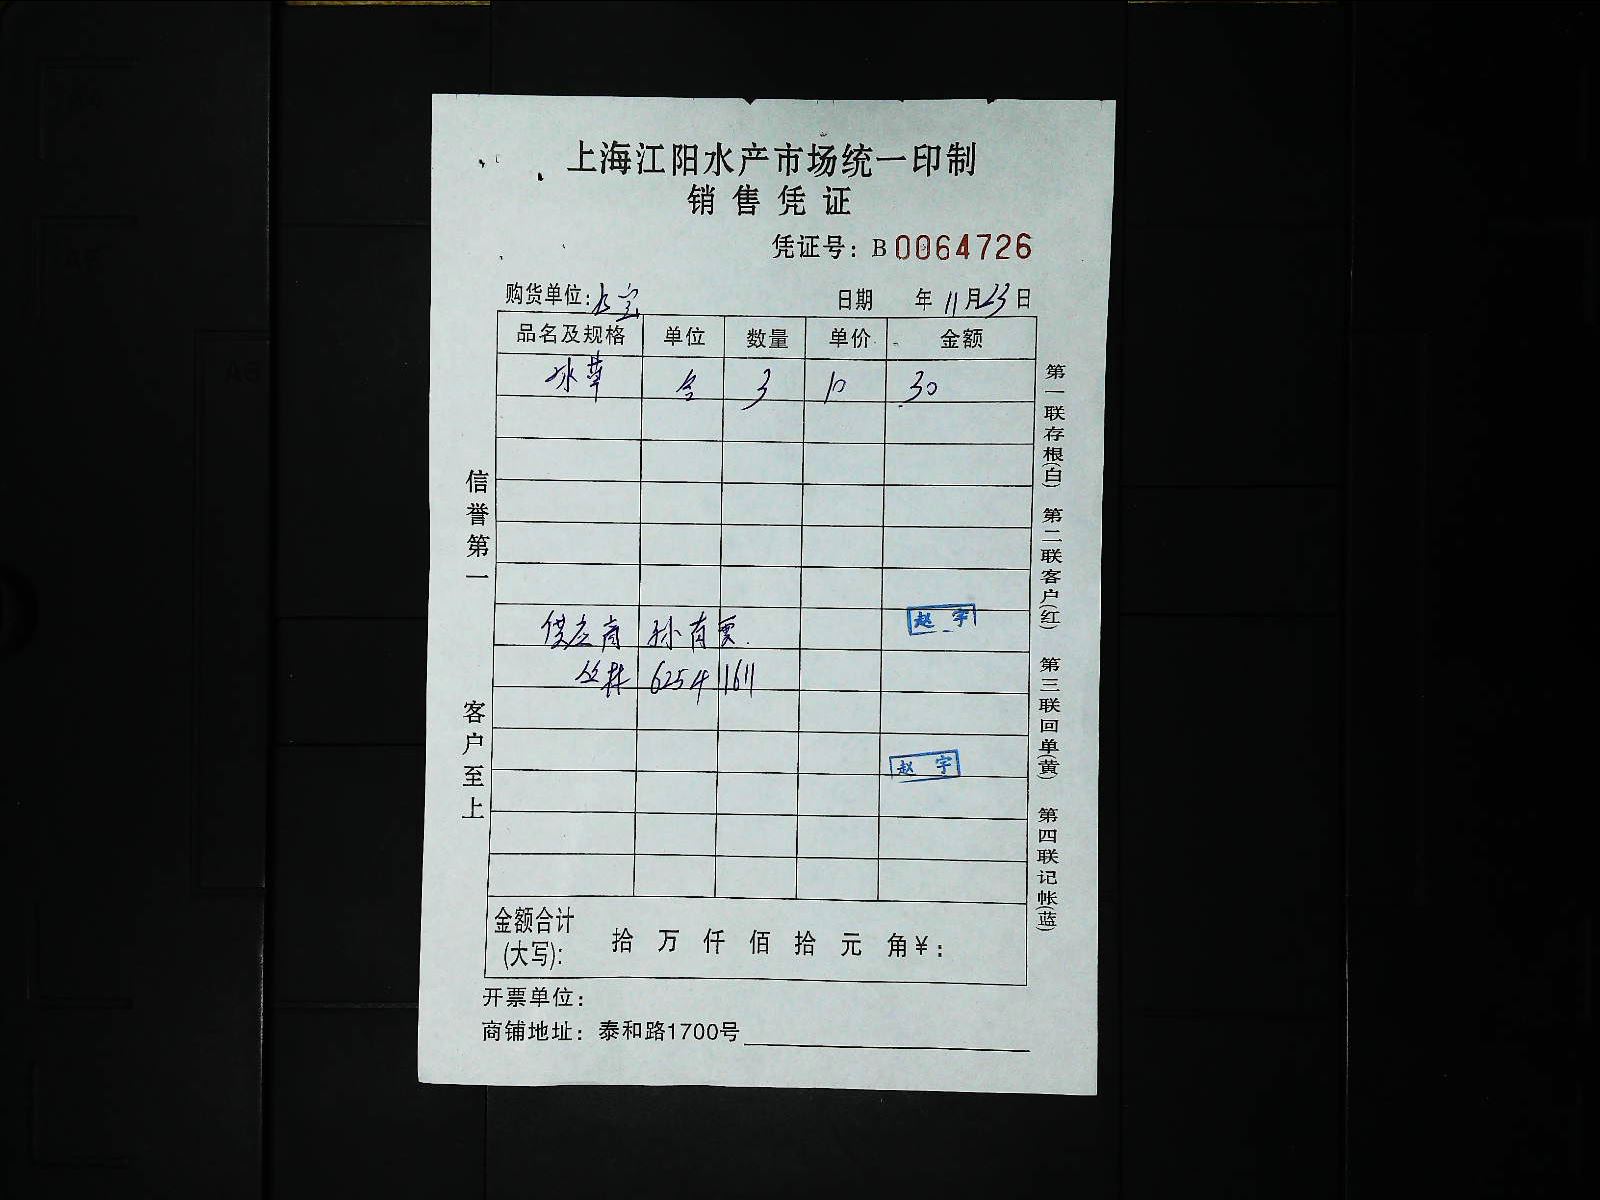 上海江阳水产市场统一印制
销售凭证
凭证号：B0064726
购货单位：
日期 年 11月23日
品名及规格 单位 数量 单价 金额
冰草 3 10 30
供应商 孙
丛林 6254 1611
赵宇
赵宇
金额合计(大写): 拾 万 仟 佰 拾 元 角 ¥：
开票单位：
商铺地址：泰和路1700号
信誉第一
客户至上
第一联存根(白) 第二联客户(红) 第三联回单(黄) 第四联记帐(蓝)